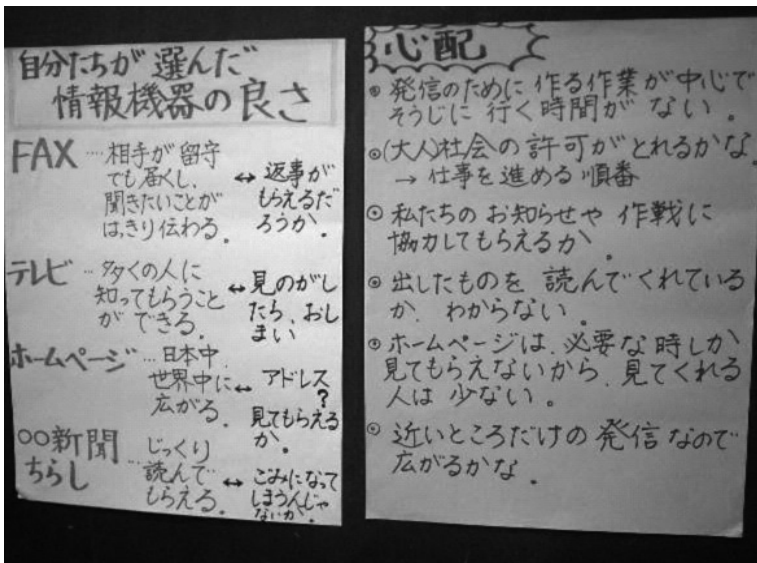 自分たちが選んだ
情報機器の良さ
FAX…相手が留守
でも届くし、
聞きたいことが
はっきり伝わる。
↔返事が
もらえるだ
ろうか。
テレビ…多くの人に
知ってもらうこと
ができる。
↔見のがし
たら、おし
まい
ホームページ…日本中、
世界中に
広がる。
↔アドレス
?
見てもらえる
か。
○○新聞
ちらし
…じっくり
読んで
もらえる。
↔ごみになって
しまうんじゃ
ないか。
心配
◎発信のために作る作業が中心で
そうじに行く時間がない。
◎(大人)社会の許可がとれるかな
→仕事を進める順番
◎私たちのお知らせや作戦に
協力してもらえるか、
◎出したものを読んでくれている
か、わからない。
◎ホームページは、必要な時しか
見てもらえないから、見てくれる
人は少ない。
◎近いところだけの発信なので
広がるかな。